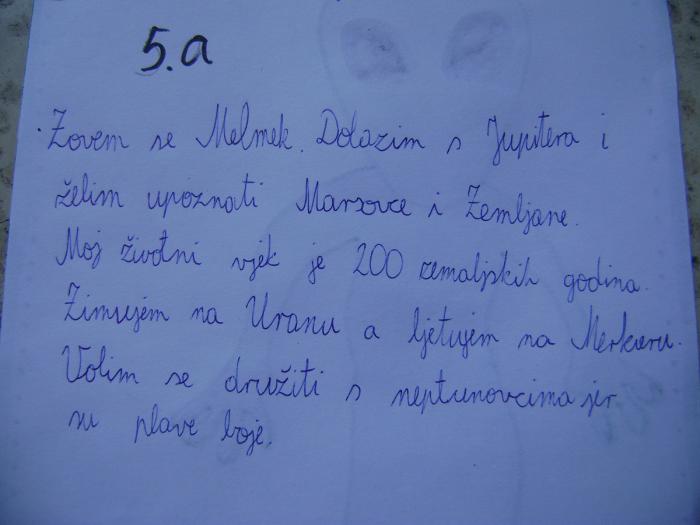 5.a
Zovem se Melmek. Dolazim s Jupitera i
želim upoznati Marsovce i Zemljane.
Moj životni vjek je 200 zemaljskih godina.
Zimujem na Uranu a ljetujem na Merkuru.
Volim se družiti s neptunovcima jer
su plave boje.